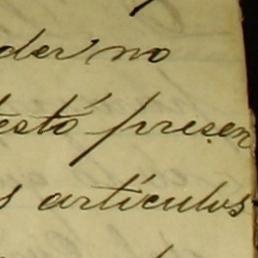 der no
está presen
s artículos